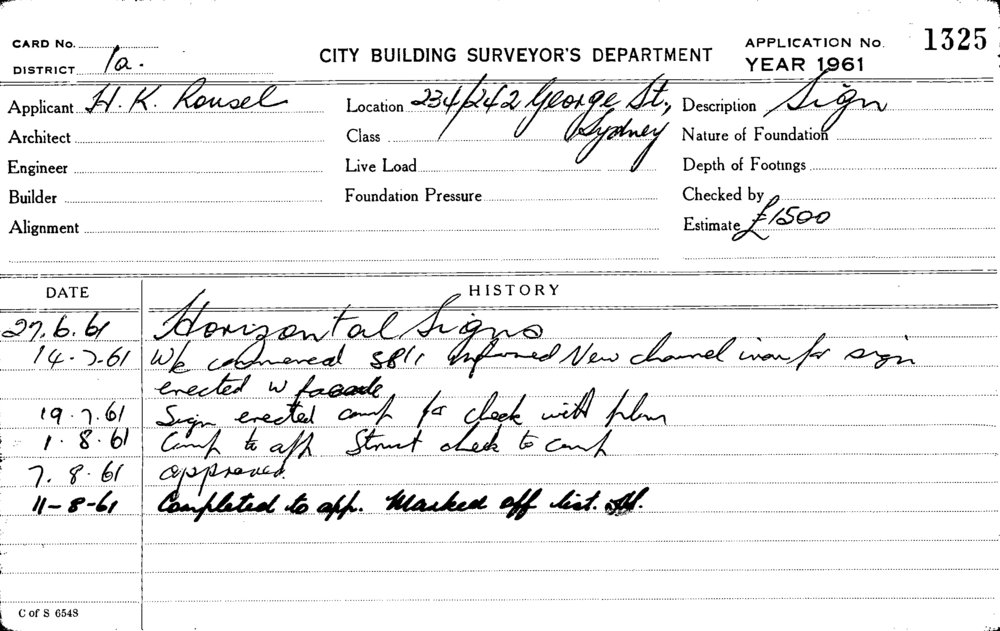 CARD No.
DISTRICT 1a.
CITY BUILDING SURVEYOR'S DEPARTMENT
APPLICATION No. 1325
YEAR 1961
Applicant H. K. Rousel Location 234/242 George St, Sydney Description Sign
Architect Class Nature of Foundation
Engineer Live Load Depth of Footings
Builder Foundation Pressure Checked by
Alignment Estimate £1500
DATE HISTORY
27.6.61 Horizontal Signs
14.7.61 Wk commenced informed New channel iron for sign
erected w facade
19.7.61 Sign erected comp for check with plan
1.8.61 Comp to app Struct check to comp
7.8.61 approved.
11-8-61 Completed to app. Marked off list.
C of S 6548